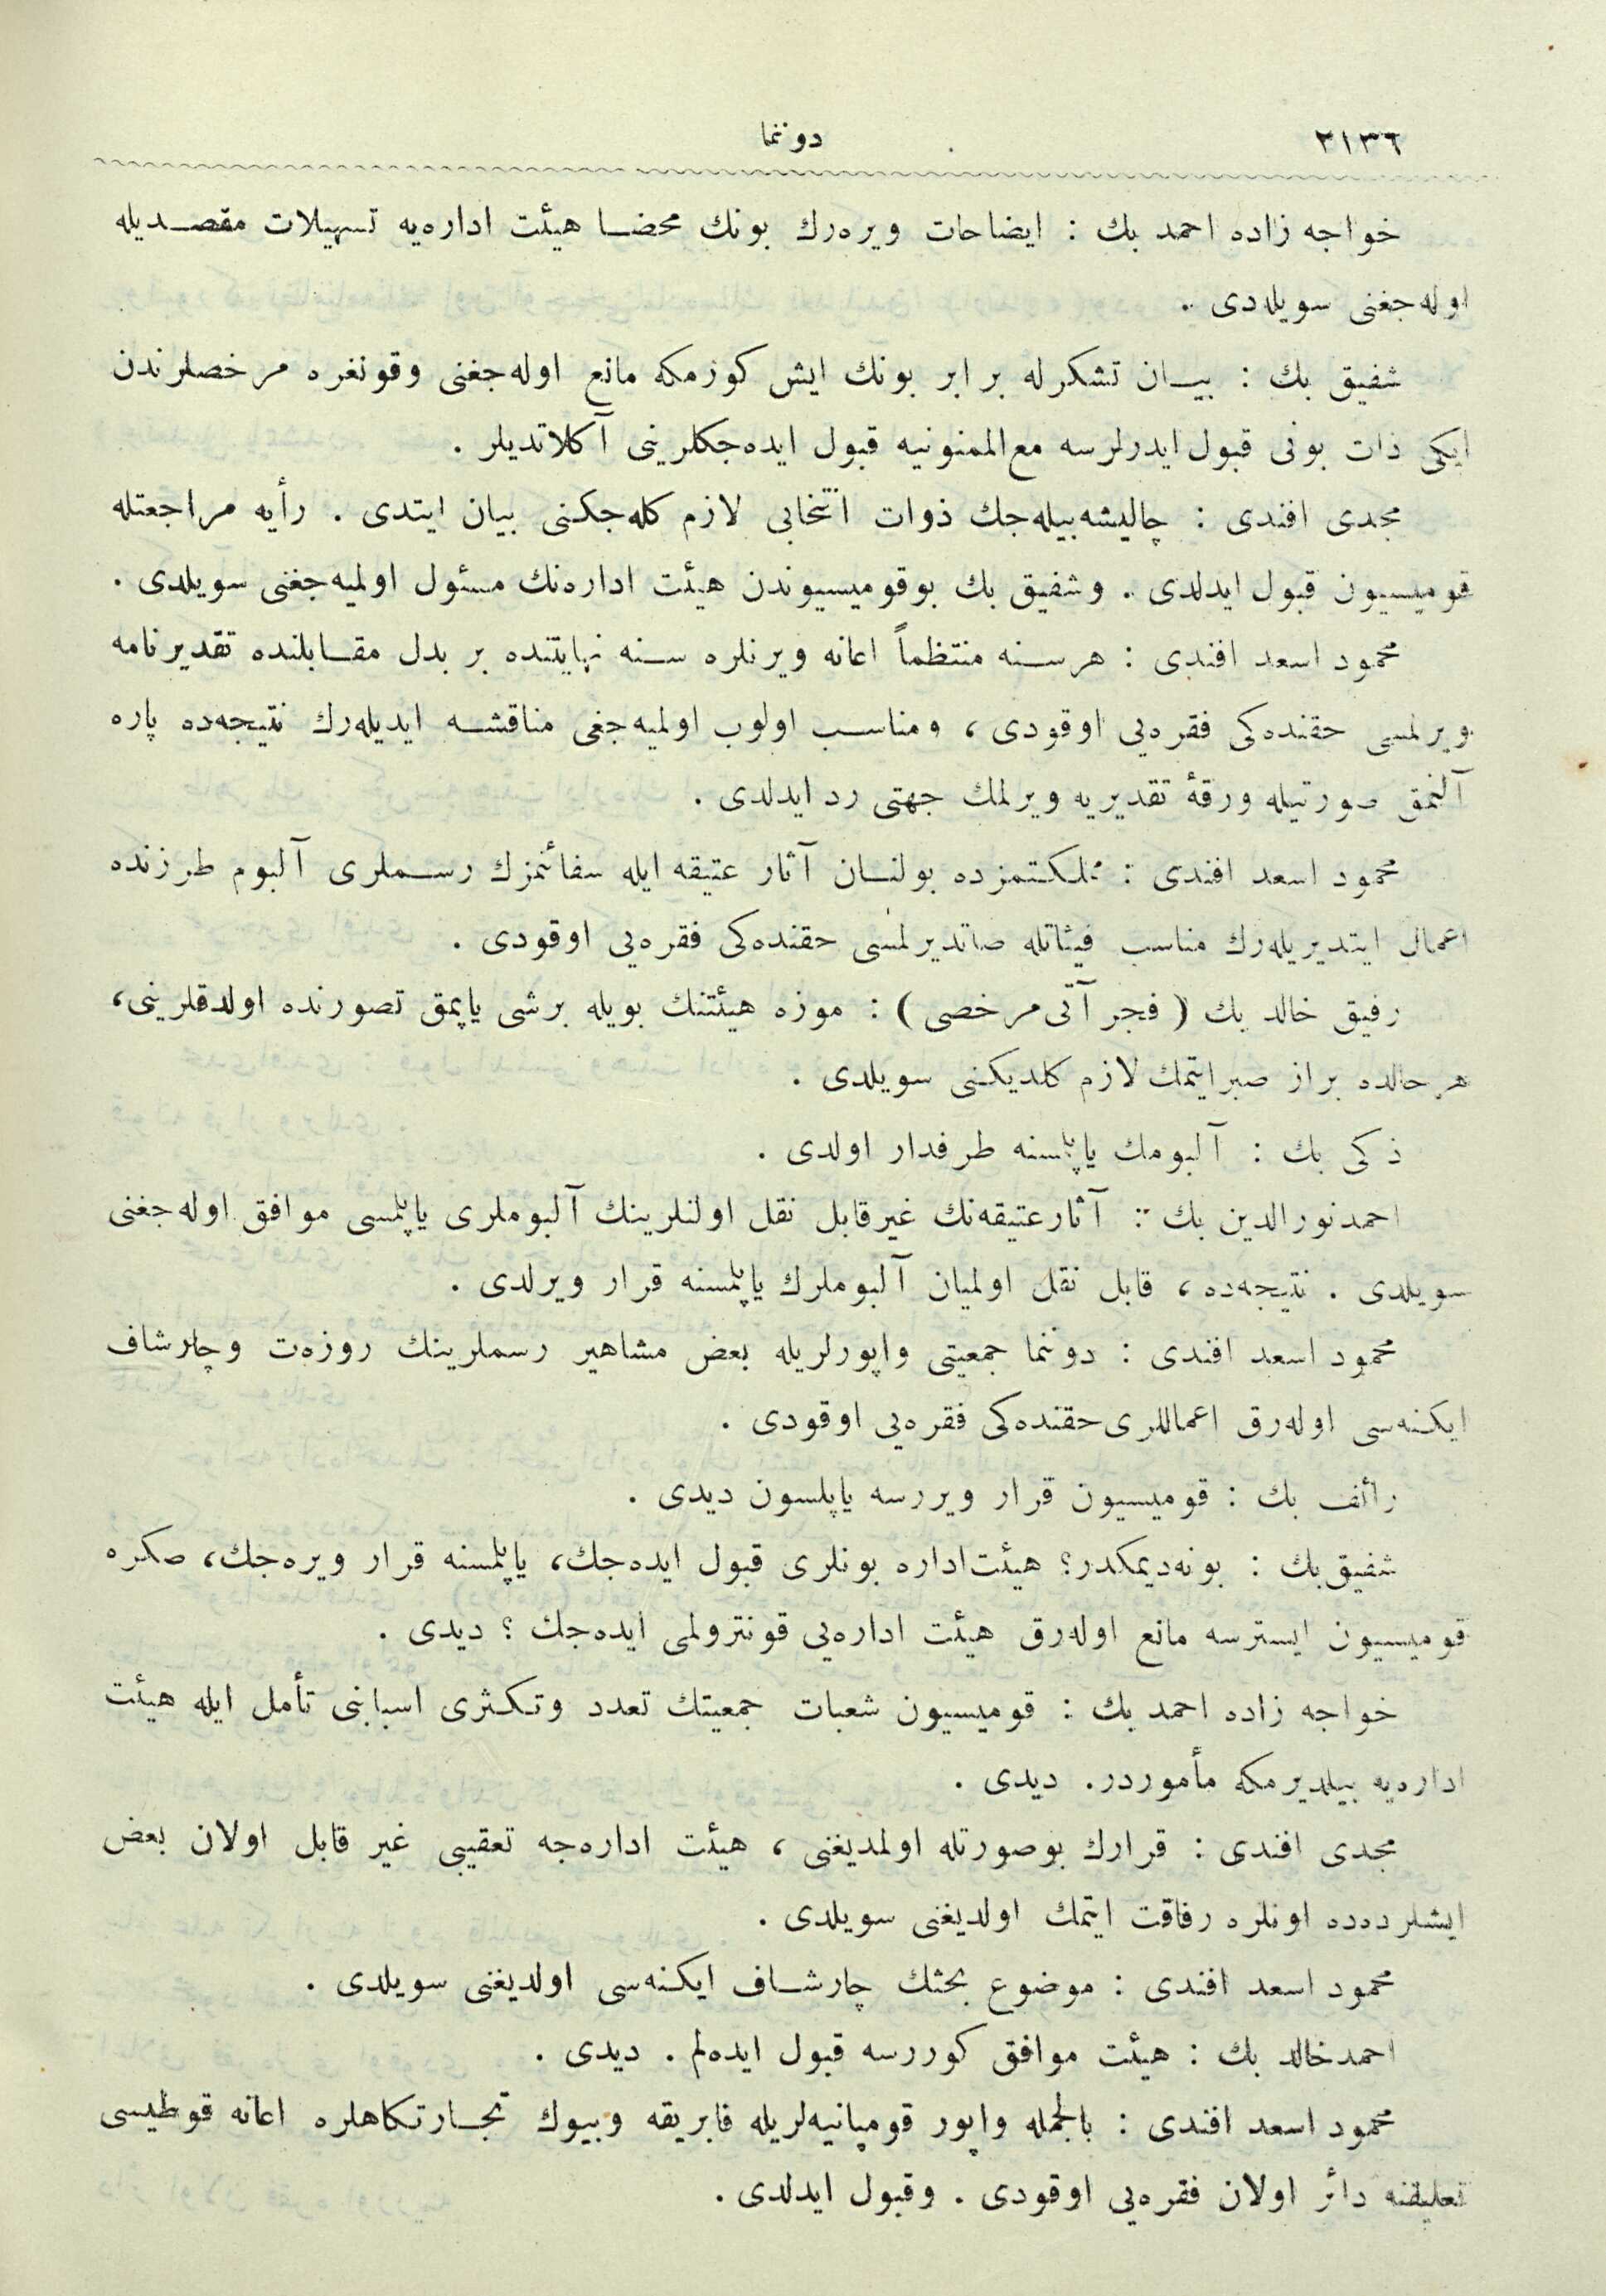 ٢١٣٦
دوننما
خواجه زاده احمد بك : ايضاحات ويره‌رك بونك محضا هيئت اداره‌يه تسهيلات مقصديله
اوله‌جغنى سويله‌دى .
شفيق بك : بيان تشكرله برابر بونك ايش كوزمكه مانع اوله‌جغنى وقونغره مرخصلرندن
ايكى ذات بونى قبول ايدرلرسه مع‌الممنونيه قبول ايده‌جكلرينى آكلاتديلر .
مجدى افندى : چاليشه‌بيله‌جك ذوات انتخابى لازم كله‌جكنى بيان ايتدى . رأيه مراجعتله
قوميسيون قبول ايدلدى . وشفيق بك بوقوميسيوندن هيئت اداره‌نك مسئول اولميه‌جغنى سويلدى .
محمود اسعد افندى : هرسنه منتظماً اعانه ويرنلره سنه نهايتنده بر بدل مقابلنده تقديرنامه
ويرلمسى حقنده‌كى فقره‌يى اوقودى ، ومناسب اولوب اولميه‌جغى مناقشه ايديله‌رك نتيجه‌ده پاره
آلنمق صورتيله ورقۀ تقديريه ويرلمك جهتى رد ايدلدى .
محمود اسعد افندى : مملكتمزده بولنان آثار عتيقه ايله سفائنمزك رسملرى آلبوم طرزنده
اعمال ايتديريله‌رك مناسب فيئاتله صاتديرلمسى حقنده‌كى فقره‌يى اوقودى .
رفيق خالد بك ( فجر آتى‌مرخصى ) : موزه هيئتنك بويله برشى ياپمق تصورنده اولدقلرينى،
هر حالده براز صبرايتمك لازم كلديكنى سويلدى .
ذكى بك : آلبومك ياپلمسنه طرفدار اولدى .
احمدنورالدين بك : آثارعتيقه‌نك غيرقابل نقل اولنلرينك آلبوملرى ياپلمسى موافق اوله‌جغنى
سويلدى . نتيجه‌ده ، قابل نقل اولميان آلبوملرك ياپلمسنه قرار ويرلدى .
محمود اسعد افندى : دوننما جمعيتى واپورلريله بعض مشاهير رسملرينك روزه‌ت وچارشاف
ايكنه‌سى اوله‌رق اعماللرى‌حقنده‌كى فقره‌يى اوقودى .
رائف بك : قوميسيون قرار ويررسه ياپلسون ديدى .
شفيق‌بك : بونه‌ديمكدر؟ هيئت‌اداره بونلرى قبول ايده‌جك، ياپلمسنه قرار ويره‌جك، صكره
قوميسيون ايسترسه مانع اوله‌رق هيئت اداره‌يى قونترولمى ايده‌جك ؟ ديدى .
خواجه زاده احمد بك : قوميسيون شعبات جمعيتك تعدد وتكثرى اسبابنى تأمل ايله هيئت
اداره‌يه بيلديرمكه مأموردر. ديدى .
مجدى افندى : قرارك بوصورتله اولمديغنى ، هيئت اداره‌جه تعقيبى غير قابل اولان بعض
ايشلرده‌ده اونلره رفاقت ايتمك اولديغنى سويلدى .
محمود اسعد افندى : موضوع بحثك چارشاف ايكنه‌سى اولديغنى سويلدى .
احمدخالد بك : هيئت موافق كوررسه قبول ايده‌لم . ديدى .
محمود اسعد افندى : بالجمله واپور قومپانيه‌لريله فابريقه وبيوك تجارتكاهلره اعانه قوطيسى
تعليقنه دائر اولان فقره‌يى اوقودى . وقبول ايدلدى .